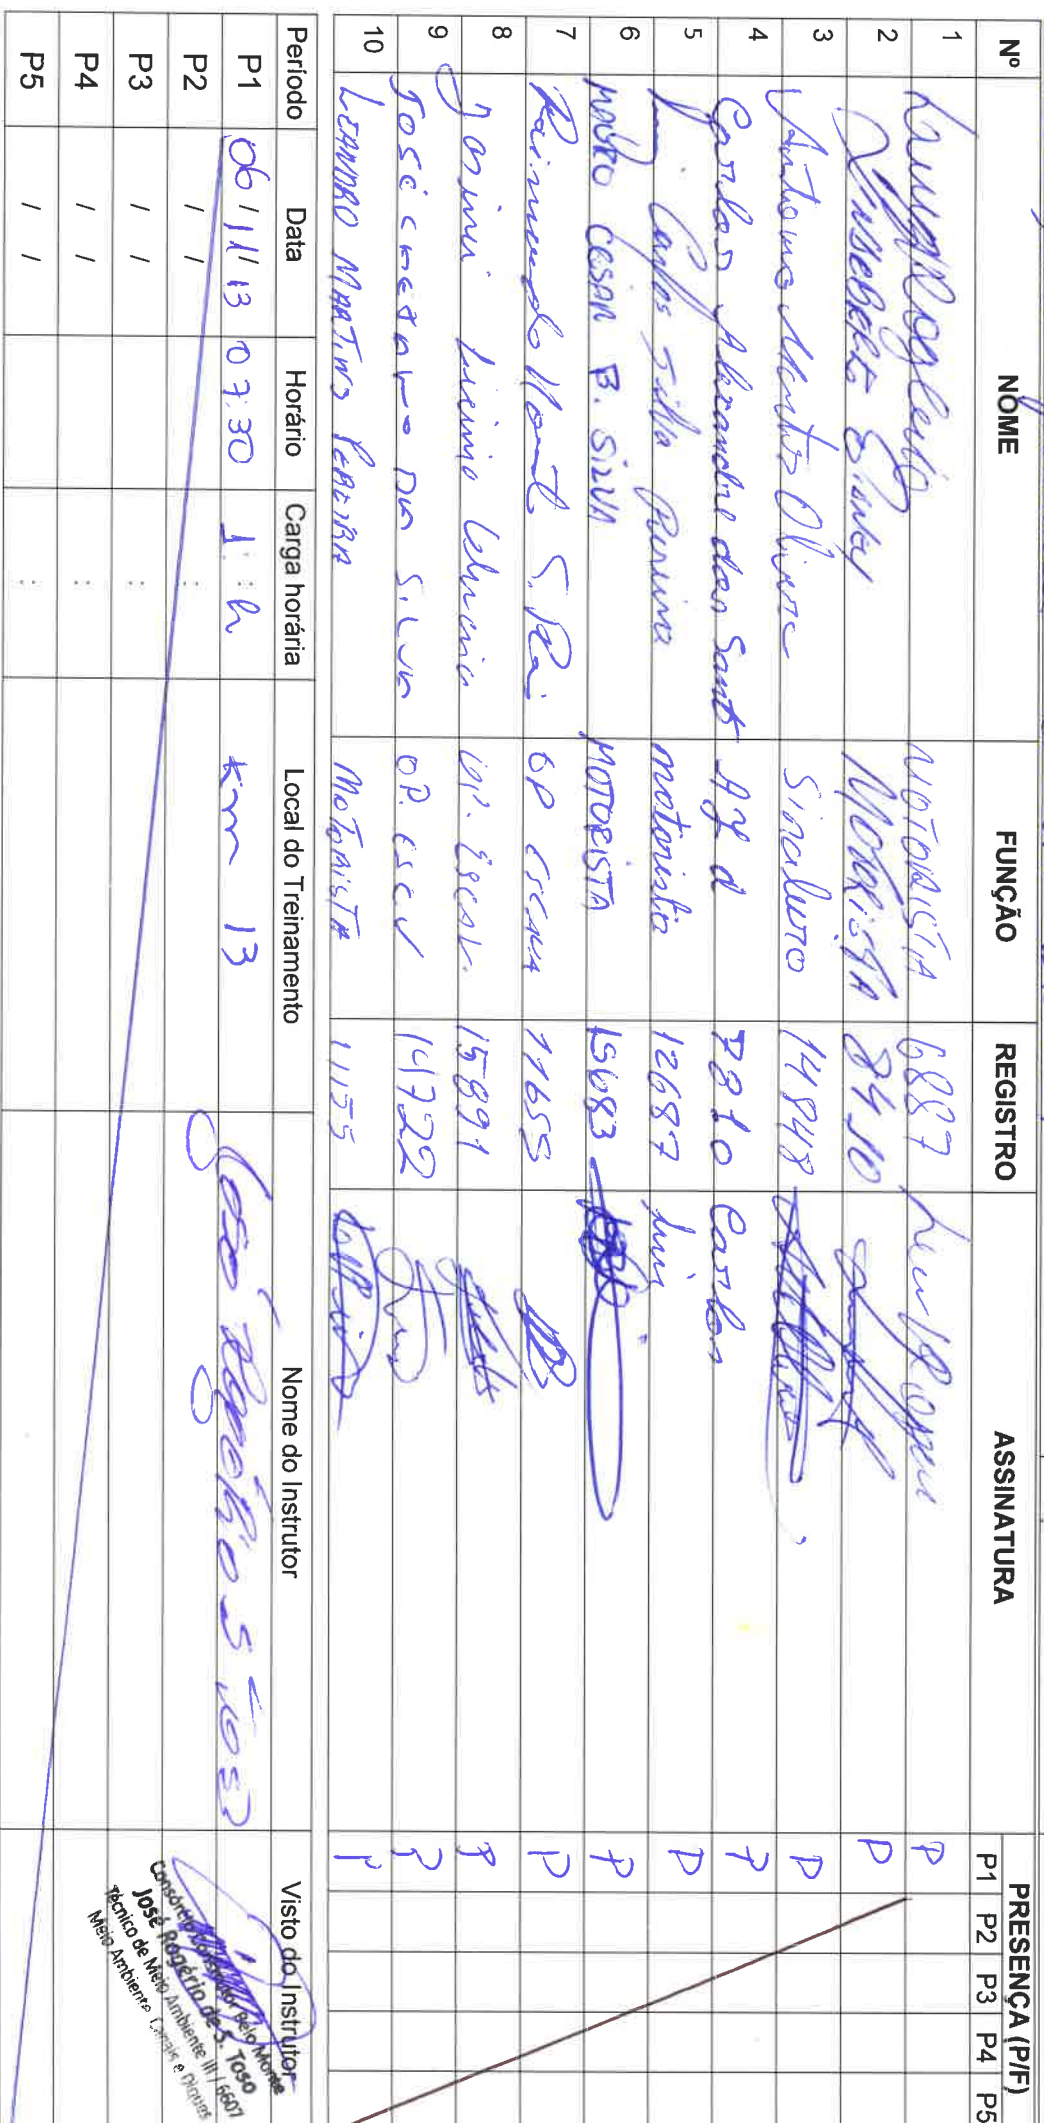 Nº NOME FUNÇÃO REGISTRO ASSINATURA PRESENÇA (P/F)
P1 P2 P3 P4 P5
1 MOTORISTA 6887 P
2 MOTORISTA 8410 P
3 Antonio Oliveira Sinaleiro 14848 P
4 Carlos Alexandre dos Sant Ag d 7810 Carlos P
5 Carlos Silva Pereira motorista 12687 Luis P
6 MAURO CESAR B. SILVA MOTORISTA 15083 P
7 Raimundo S. OP ESCAV 11655 P
8 OP. Escav. 15891 P
9 José Caetano DA SILVA OP. ESCV 14722 P
10 LEANDRO MARTINS PEREIRA MOTORISTA 11155 P
Período Data Horário Carga horária Local do Treinamento Nome do Instrutor Visto do Instrutor
P1 06/11/13 07:30 1:h Km 13 José Rogério S.
P2 / / :
P3 / / :
P4 / / :
P5 / / :
Consórcio Construtor Belo Monte
José Rogério de S. Toso
Técnico de Meio Ambiente III / 6607
Meio Ambiente Canais e Diques